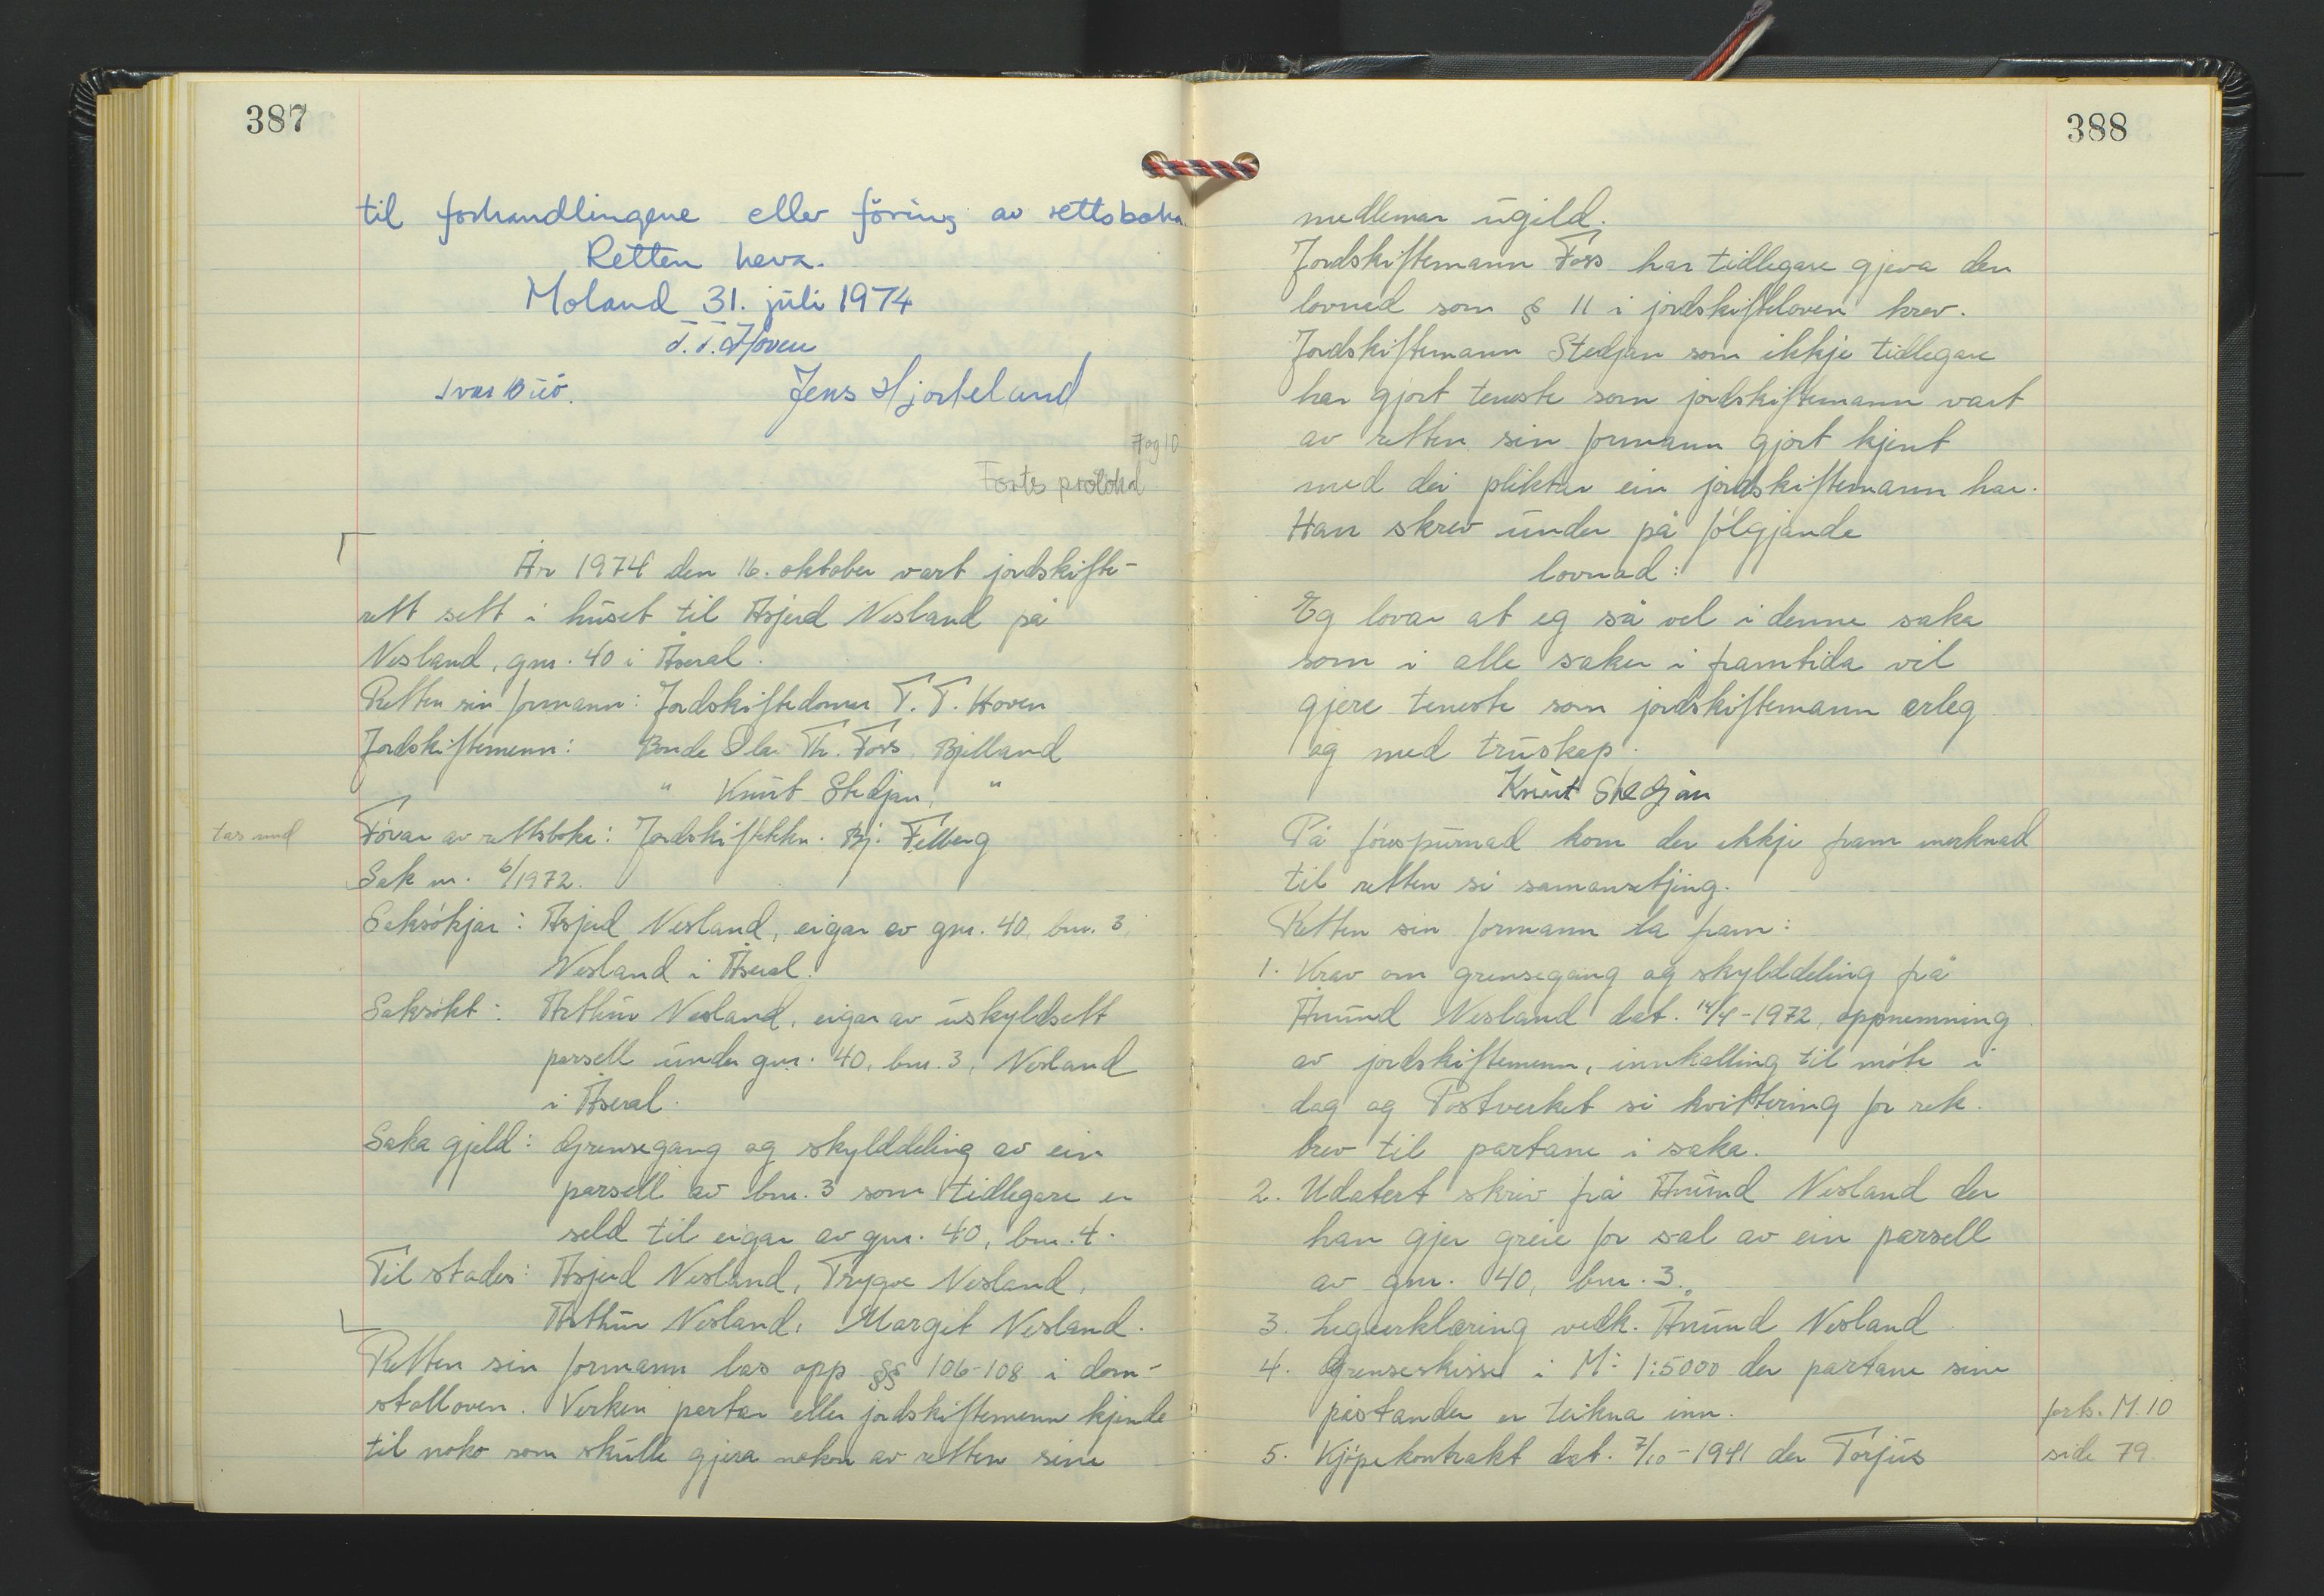 387
til forhandlingene eller föring av rettsboka.
Retten heva.
Moland 31. juli 1974
T. T. Hoven
Ivar Buö. Jens Hjorteland
7 og 10
protokol
År 1974 den 16. oktober vart jordskifte-
rett sett i huset til Asjerd Nesland på
Nesland, gnr. 40 i Åseral.
Retten sin formann: Jordskiftedomer T. T. Hoven
Jordskiftemenn: Bonde Ola Th. Foss, Bjelland
" Knut Stedjan, "
tas med
Førar av rettsboka: Jordskiftekkn. Bj. Felberg
Sak nr. 6/1972.
Saksøkjar: Asjerd Nesland, eigar av gnr. 40, bnr. 3,
Nesland i Åseral.
Saksøkt: Arthur Nesland, eigar av uskyldsett
parsell under gnr. 40, bnr. 3, Nesland
i Åseral.
Saka gjeld: Grensegang og skylddeling av ein
parsell av bnr. 3 som tidlegare er
seld til eigar av gnr. 40, bnr. 4.
Til stades: Asjerd Nesland, Trygve Nesland,
Arthur Nesland, Margit Nesland.
Retten sin formann las opp §§ 106-108 i dom-
stolloven. Verken partar eller jordskiftemenn kjende
til noko som skulle gjera nokon av retten sine
388
medlemar ugild.
Jordskiftemann Foss har tidlegare gjeva den
lovnad som § 11 i jordskifteloven krev.
Jordskiftemann Stedjan som ikkje tidlegare
har gjort teneste som jordskiftemann vart
av retten sin formann gjort kjent
med dei plikter ein jordskiftemann har.
Han skrev under på følgjande
lovnad:
Eg lovar at eg så vel i denne saka
som i alle saker i framtida vil
gjere teneste som jordskiftemann ærleg
og med truskap.
Knut Stedjan
På førespurnad kom der ikkje fram merknad
til retten si samansetjing.
Retten sin formann la fram:
1. Krav om grensegang og skylddeling frå
Ånund Nesland dat. 14/4-1972, oppnemning
av jordskiftemenn, innkalling til møte i
dag og Postverket si kvittering for rek.
brev til partane i saka.
2. Udatert skriv frå Ånund Nesland der
han gjer greie for sal av ein parsell
av gnr. 40, bnr. 3.
3. Legeerklæring vedk. Ånund Nesland.
4. Grenseskisse i M: 1:5000 der partane sine
påstander er teikna inn.
forts. M. 10
5. Kjøpekontrakt dat. 7/10-1941 der Torjus
side 79